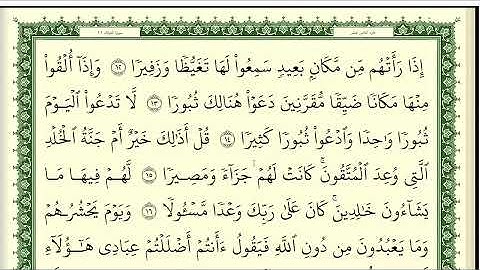 إِذَا رَأَتْهُم مِّن مَّكَانٍۭ بَعِيدٍ سَمِعُوا۟ لَهَا تَغَيُّظًا وَزَفِيرًا ١٢ وَإِذَآ أُلْقُوا۟
مِنْهَا مَكَانًا ضَيِّقًا مُّقَرَّنِينَ دَعَوْا۟ هُنَالِكَ ثُبُورًا ١٣ لَّا تَدْعُوا۟ الْيَوْمَ
ثُبُورًا وَٰحِدًا وَادْعُوا۟ ثُبُورًا كَثِيرًا ١٤ قُلْ أَذَٰلِكَ خَيْرٌ أَمْ جَنَّةُ الْخُلْدِ
الَّتِي وُعِدَ الْمُتَّقُونَ ۚ كَانَتْ لَهُمْ جَزَآءً وَمَصِيرًا ١٥ لَّهُمْ فِيهَا مَا
يَشَآءُونَ خَٰلِدِينَ ۚ كَانَ عَلَىٰ رَبِّكَ وَعْدًا مَّسْـُٔولًا ١٦ وَيَوْمَ يَحْشُرُهُمْ
وَمَا يَعْبُدُونَ مِن دُونِ اللَّهِ فَيَقُولُ ءَأَنتُمْ أَضْلَلْتُمْ عِبَادِى هَٰٓؤُلَآءِ